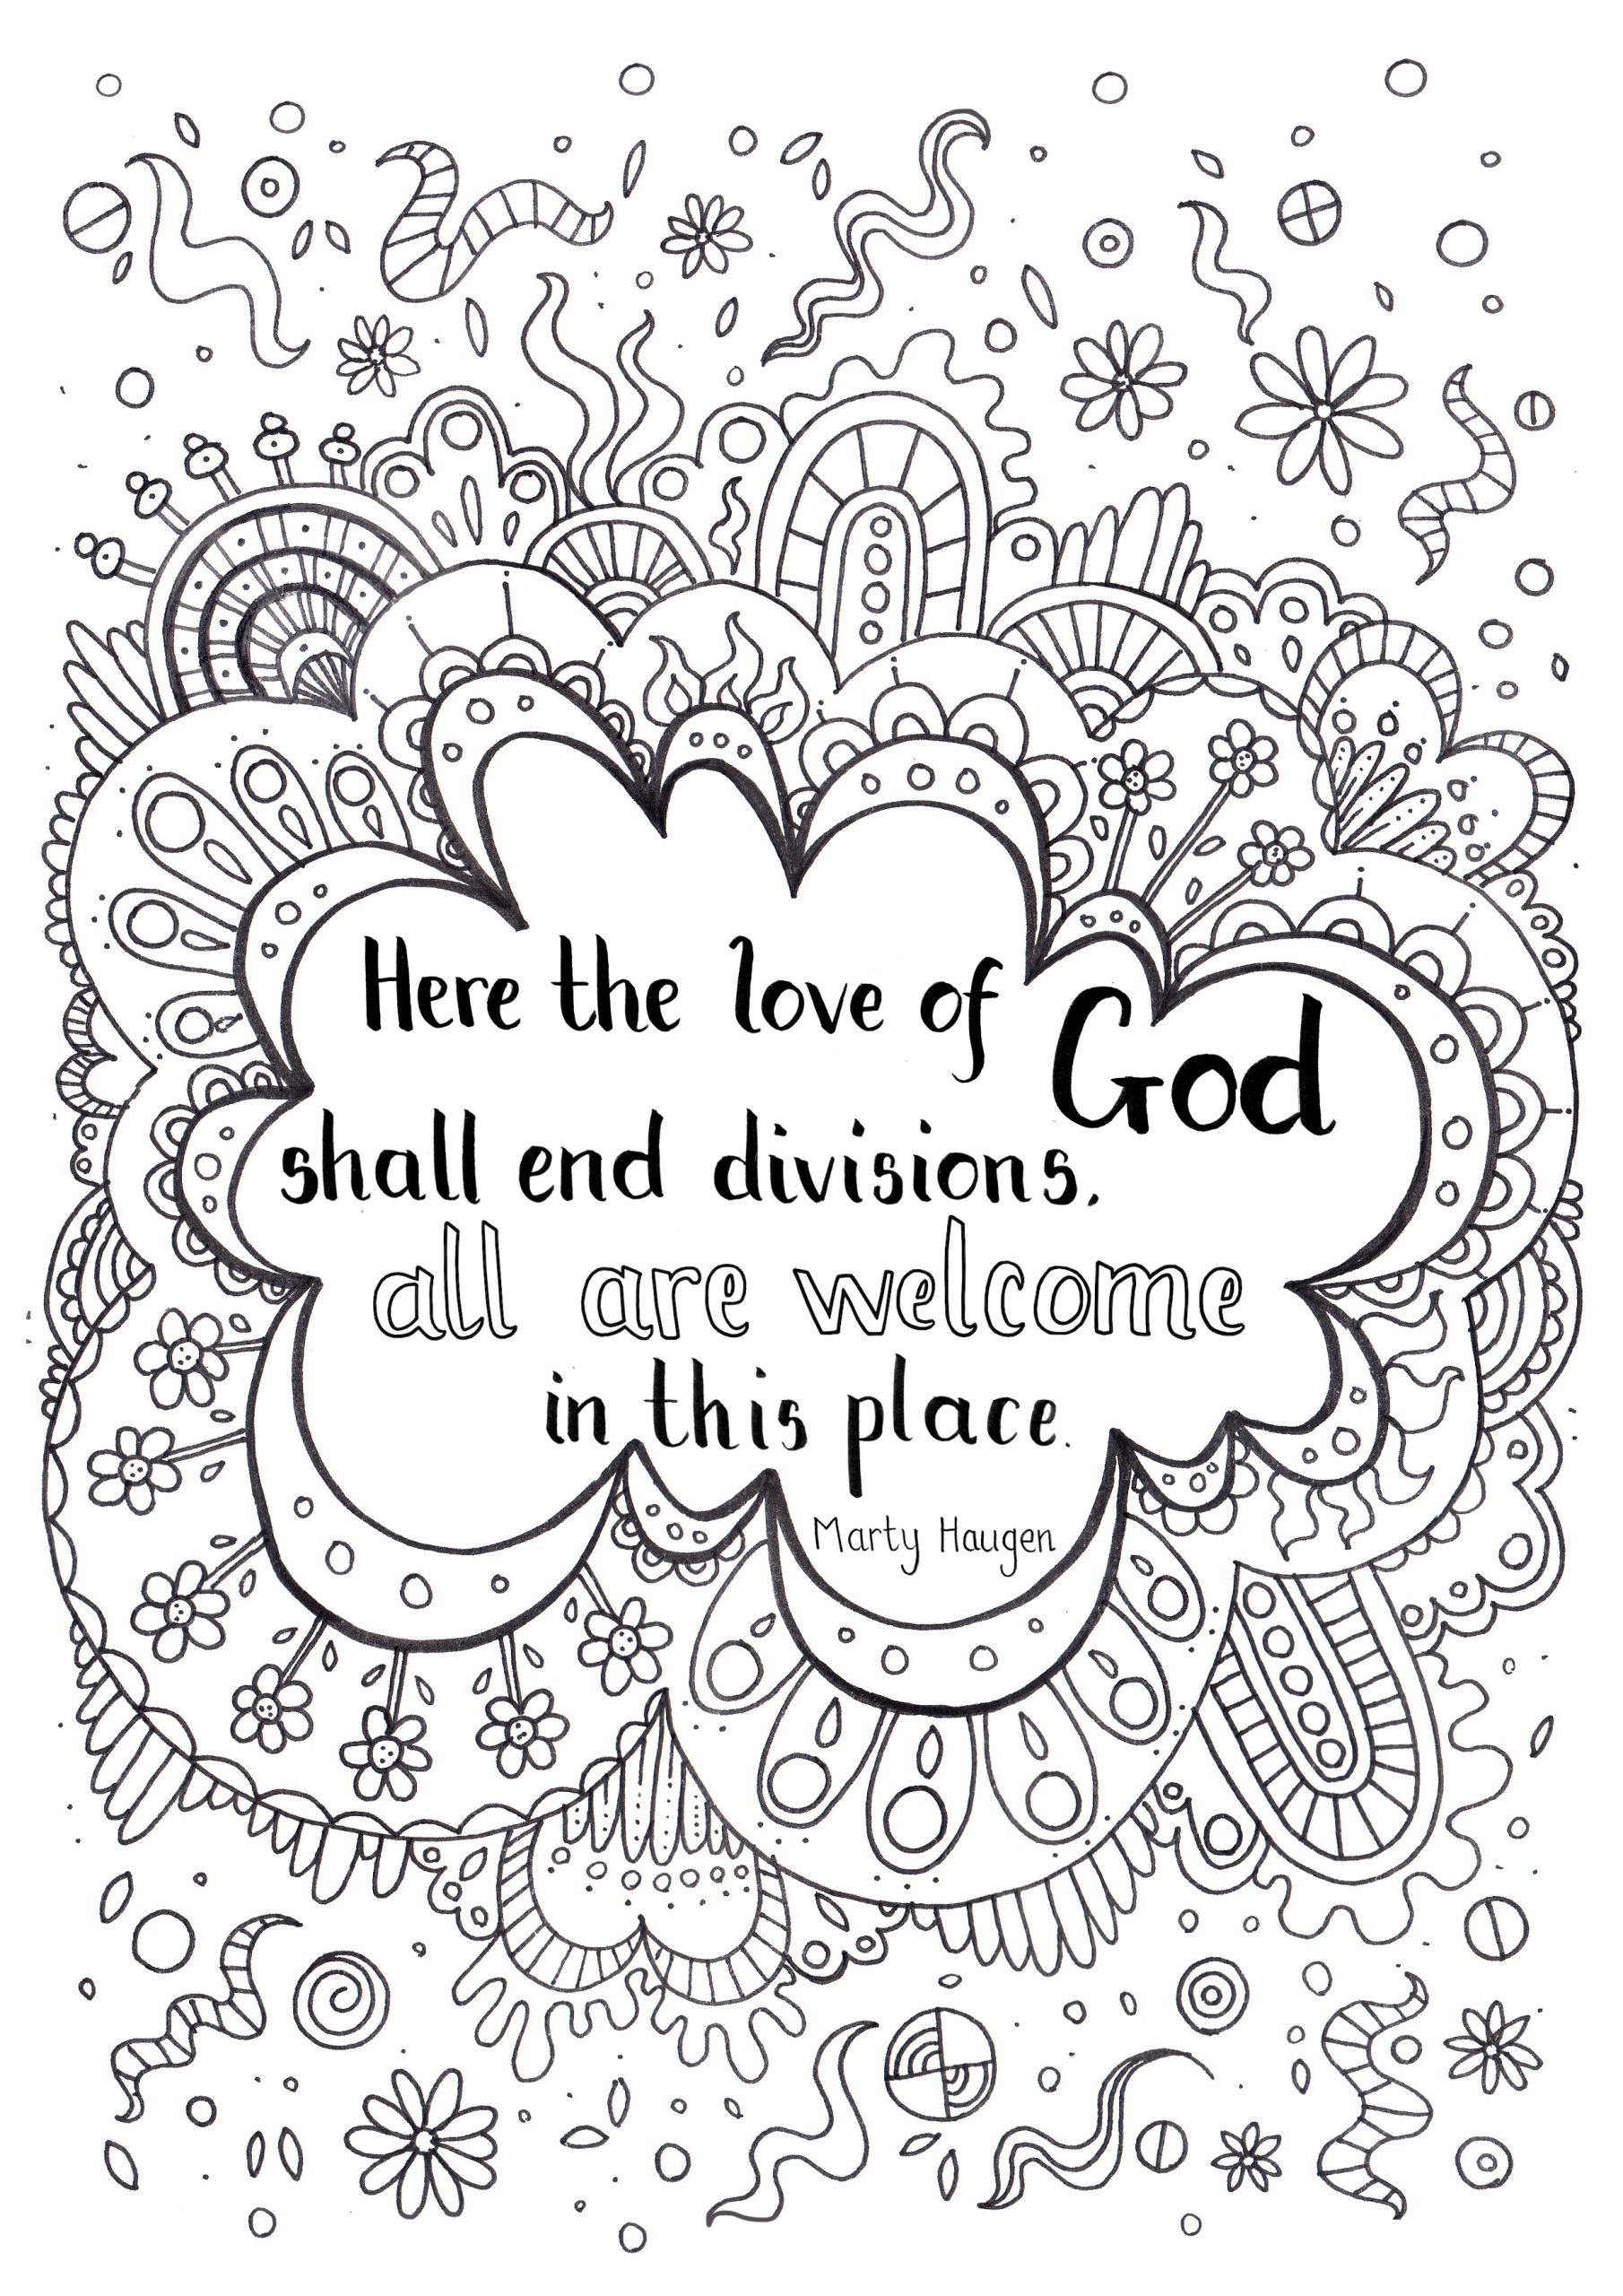 Here the love of God
shall end divisions,
all are welcome
in this place.
Marty Haugen